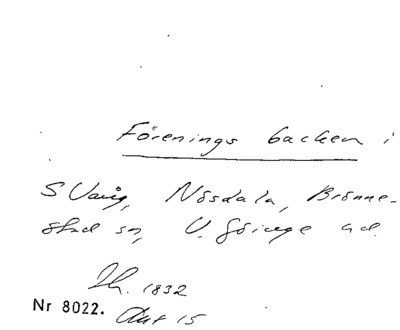 Föreningsbacken i
S Varig, Nösdala, Brönne-
stad sn, V. Göinge hd.
Th. 1832
Nr 8022. Akt 15